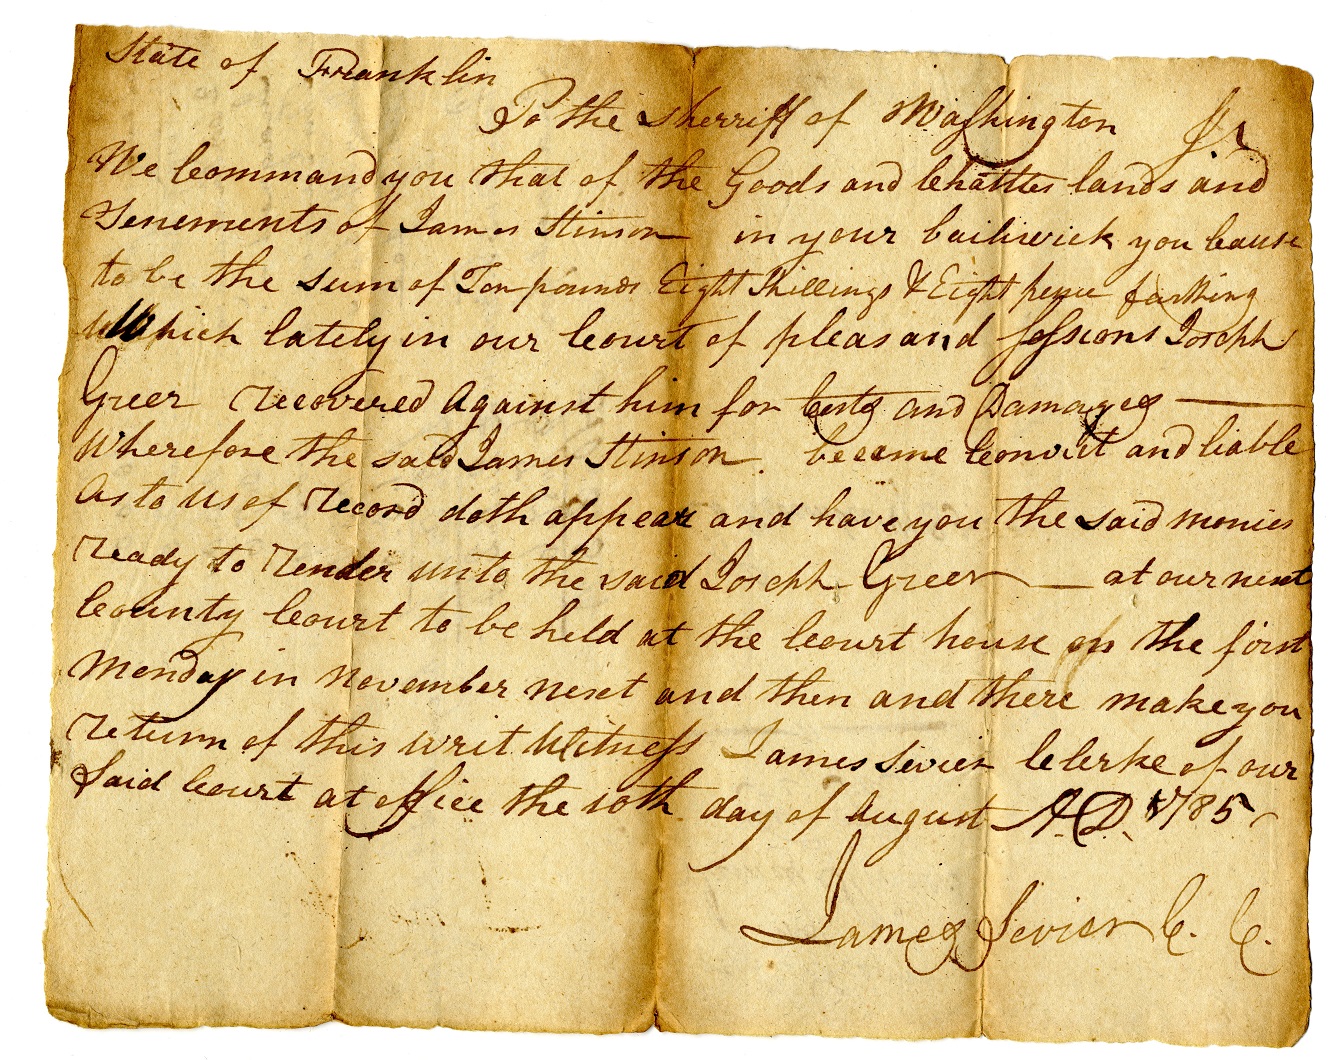 State of Franklin
To the Sherriff of Washington
We Command you that of the Goods and Chattles lands and
Tenements of James Stinson in your bailiwick you Cause
to be the sum of Ten pounds Eight Shillings & Eight pence farthing
Which lately in our Court of pleas and Sessions Joseph
Greer recovered Against him for Costs and Damages
Wherefore the said James Stinson become Convict and liable
As to us of record doth appear and have you the said monies
ready to render unto the said Joseph Greer at our next
County Court to be held at the Court house on the first
Monday in November next and then and there make you
return of this writ Witness James Sevier Clerke of our
Said Court at office the 10th day of August A.D. 1785
James Sevier C. C.